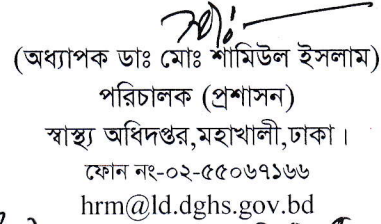 (অধ্যাপক ডাঃ মোঃ শামিউল ইসলাম)
পরিচালক (প্রশাসন)
স্বাস্থ্য অধিদপ্তর,মহাখালী,ঢাকা।
ফোন নং-০২-৫৫০৬৭১৬৬
hrm@ld.dghs.gov.bd